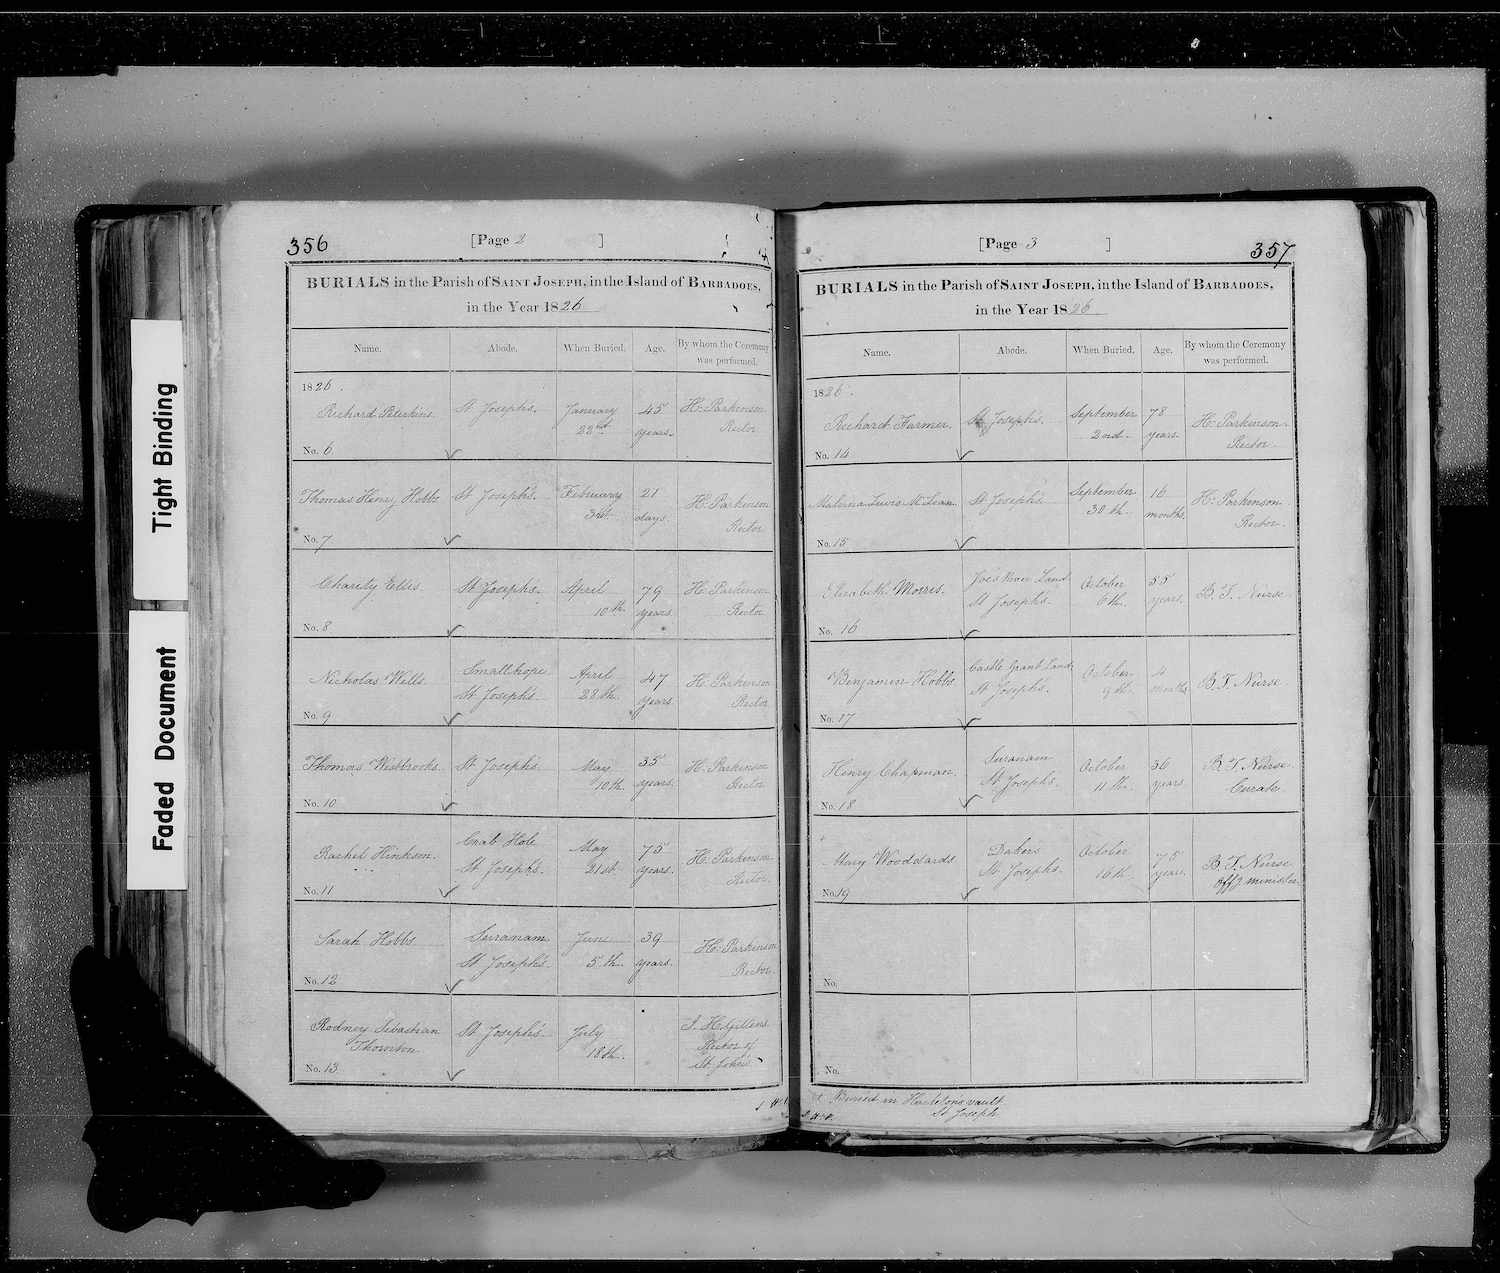 Tight Binding
Faded Document
356
[Page 2 ]
BURIALS in the Parish of SAINT JOSEPH, in the Island of BARBADOES,
in the Year 1826
Name. Abode. When Buried. Age. By whom the Ceremony
was performed.
1826.
Richard Peterkins St Joseph's. January 45 H. Parkinson
22nd years. Rector
No. 6
Thomas Henry Hobbs St Joseph's. February 21 H. Parkinson
3rd days. Rector
No. 7
Charity Ellis St Joseph's. April 79 H. Parkinson
10th years Rector
No. 8
Nicholas Wells Smallhope April 47 H. Parkinson
St Joseph's 28th years Rector
No. 9
Thomas Westbrooks St Joseph's May 35 H. Parkinson
10th years. Rector
No. 10
Rachel Hinkson Crab Hole May 75 H. Parkinson
St Joseph's. 21st years. Rector.
No. 11
Sarah Hobbs Suranam June 39 H. Parkinson
St Joseph's. 5th years. Rector.
No. 12
Rodney Sebastian St Joseph's July
Thornton 18th. Rector of
St John's
No. 13
357
[Page 3 ]
BURIALS in the Parish of SAINT JOSEPH, in the Island of BARBADOES,
in the Year 1826.
Name. Abode. When Buried. Age. By whom the Ceremony
was performed.
1826.
Richard Farmer. St Joseph's. September 78 H. Parkinson
2nd years. Rector.
No. 14
Malvina Lewis McLean St Joseph's September 16 H. Parkinson
30th. months. Rector.
No. 15
Elizabeth Morris. Joes River Land October 55 B. F. Nurse
St Joseph's. 6th. years.
No. 16
Benjamin Hobbs Castle Grant Land October 4 B. F. Nurse
St Joseph's. 9th. months
No. 17
Henry Chapman. Suranam October 36 B. F. Nurse
St Joseph's. 11th. years Curate.
No. 18
Mary Woodwards Dakers October 75 B. F. Nurse
St Joseph's. 16th years. Offg minister
No. 19
No.
No.
x Buried in vault
St Joseph